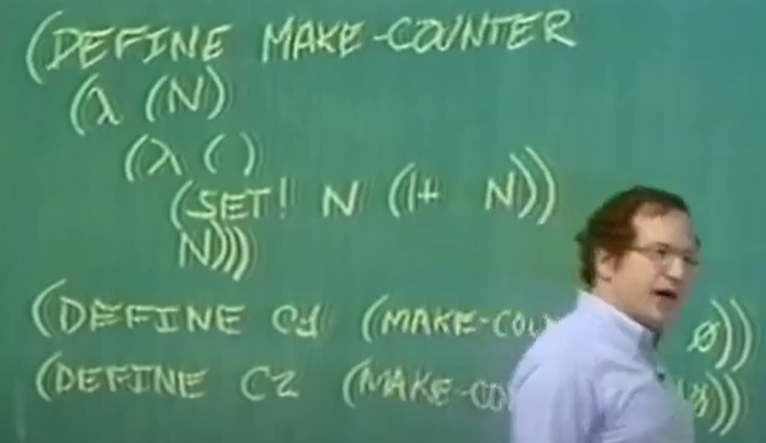 (DEFINE MAKE-COUNTER
(λ (N)
(λ ()
(SET! N (1+ N))
N)))
(DEFINE C1 (MAKE-COU 0))
(DEFINE C2 (MAKE-CO ))